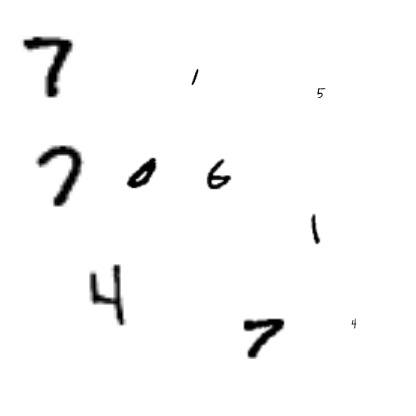 7 1 5
7 0 6
1
4
7 4